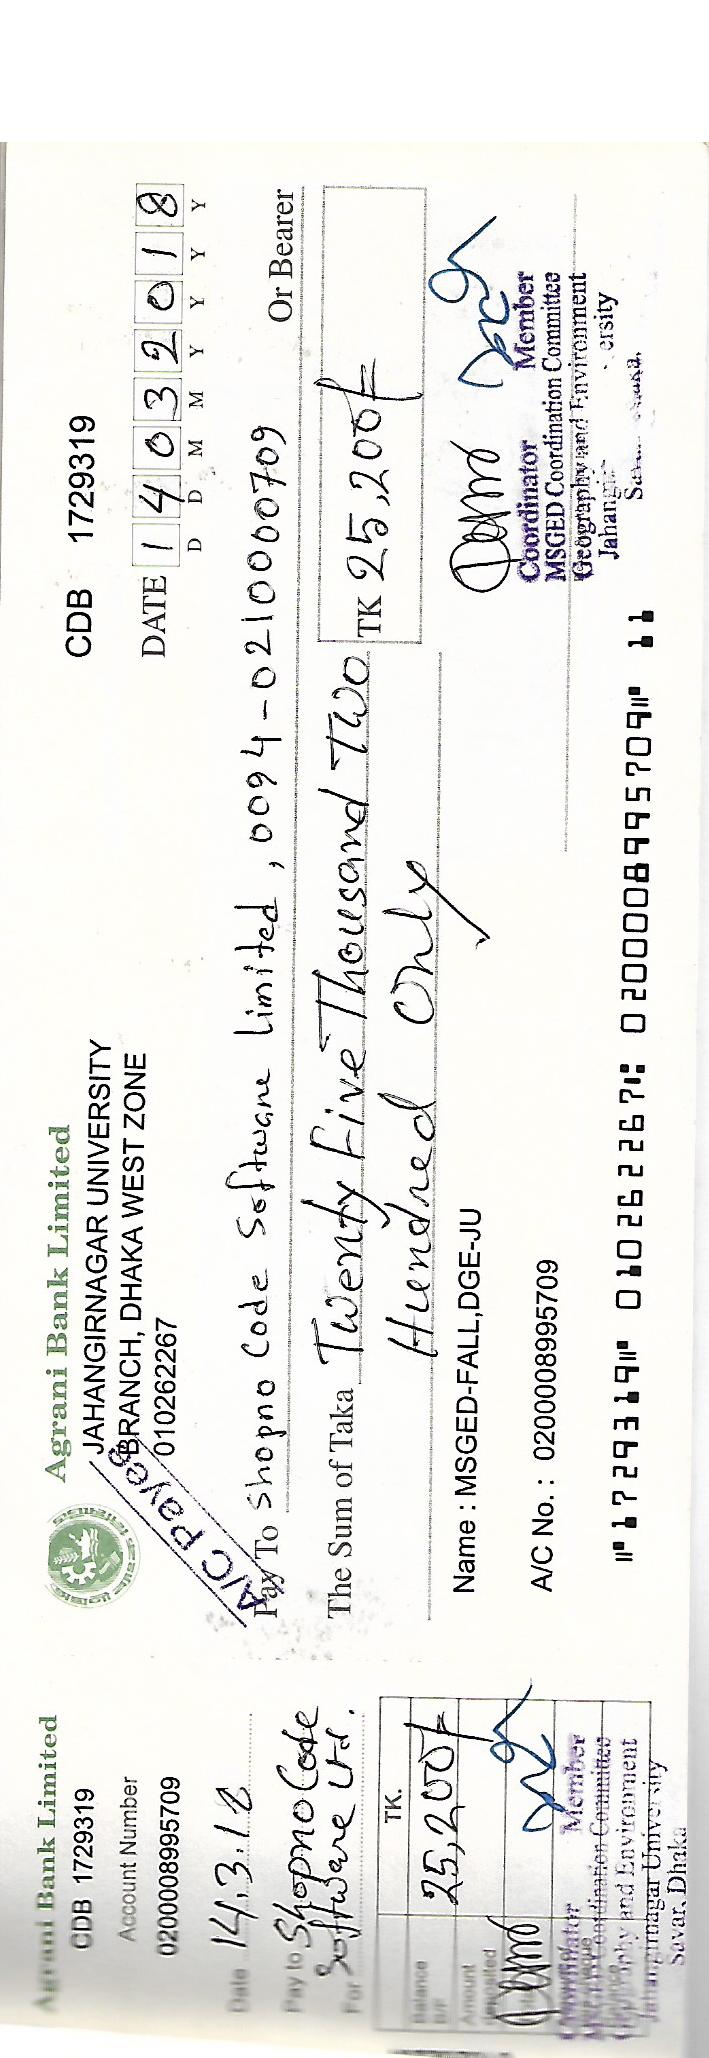 Agrani Bank Limited
CDB 1729319
Account Number
0200008995709
Date 14.3.18
Pay to Shopno Code
Software Ltd.
For
TK.
Balance
B/F
25,200/-
Amount
Deposited
Member
Coordination Committee
Geography and Environment
Jahangirnagar University
Savar, Dhaka
Agrani Bank Limited
JAHANGIRNAGAR UNIVERSITY
BRANCH, DHAKA WEST ZONE
010262267
A/C Payee
CDB 1729319
DATE 14032018
D D M M Y Y Y Y
Pay To Shopno Code Software Limited, 0094-0210000709
Or Bearer
The Sum of Taka Twenty Five Thousand Two
Hundred Only
TK 25,200/-
Name : MSGED-FALL,DGE-JU
A/C No. : 0200008995709
Coordinator Member
MSGED Coordination Committee
Geography and Environment
Jahangir ersity
⑈1729319⑈ 010262267⑆ 0200008995709⑈ 11